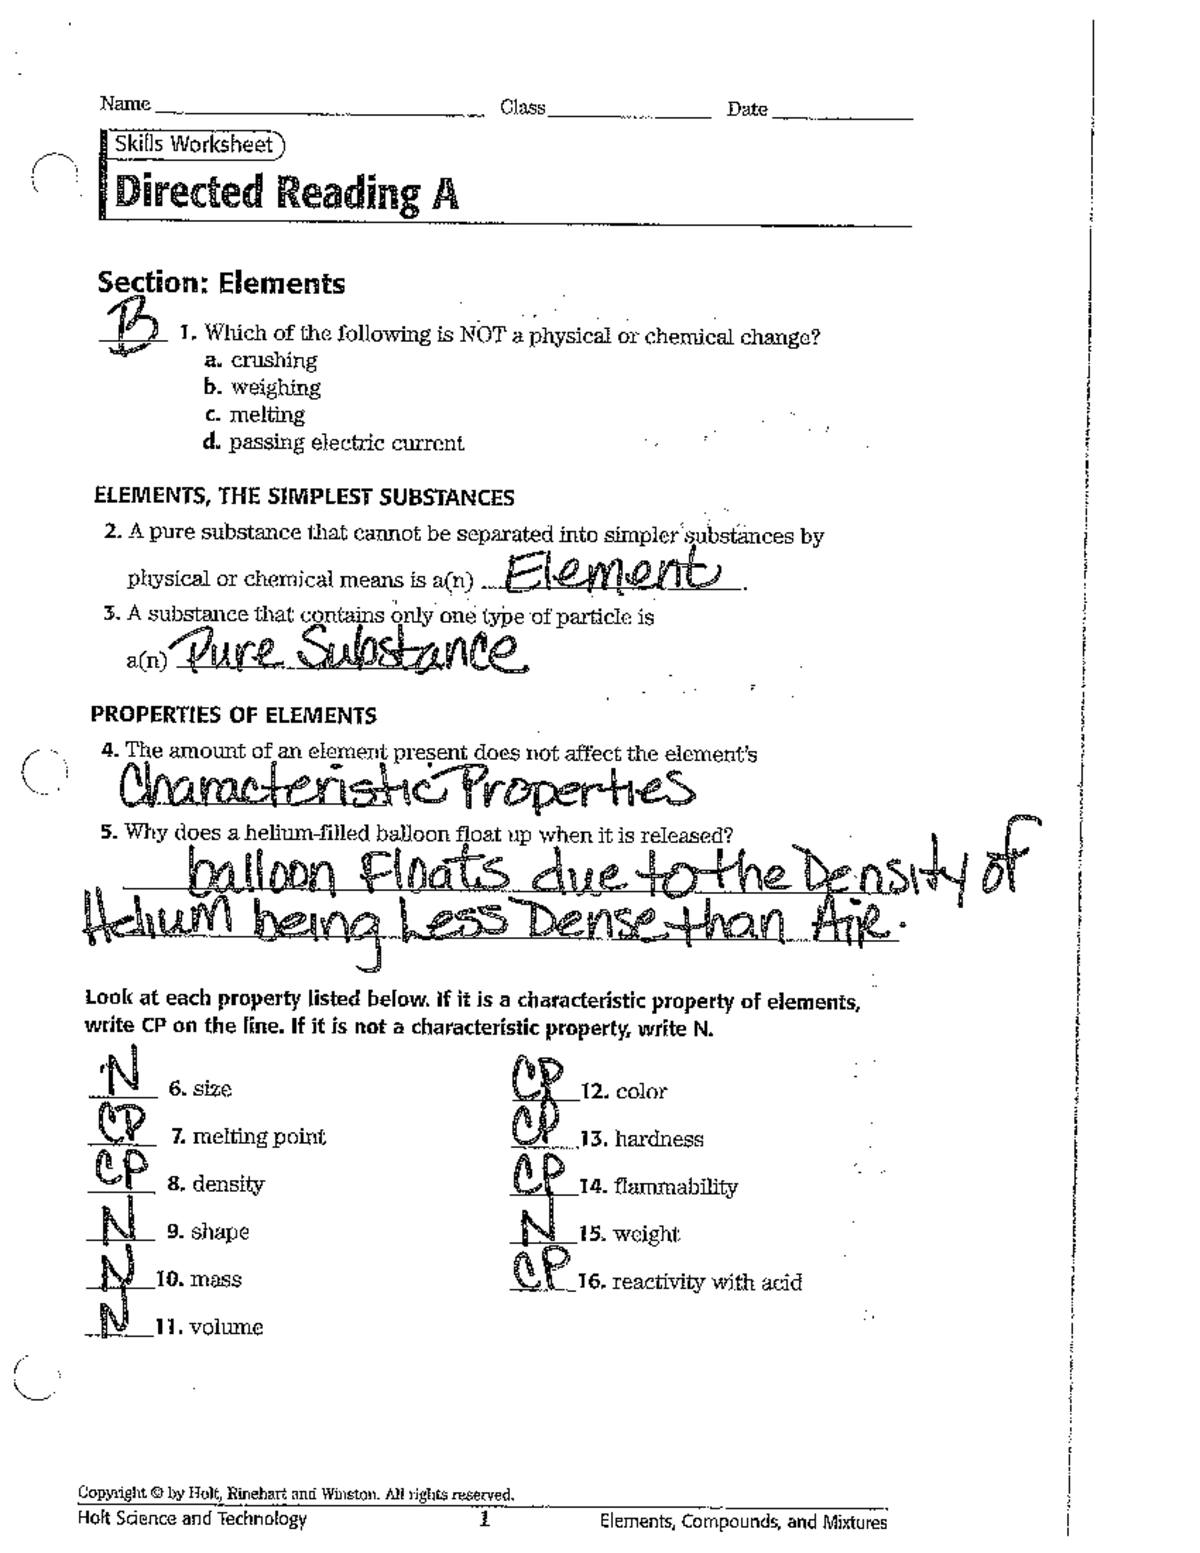 Name Class Date
Skills Worksheet
Directed Reading A
Section: Elements
B 1. Which of the following is NOT a physical or chemical change?
a. crushing
b. weighing
c. melting
d. passing electric current
ELEMENTS, THE SIMPLEST SUBSTANCES
2. A pure substance that cannot be separated into simpler substances by
physical or chemical means is a(n) Element.
3. A substance that contains only one type of particle is
a(n) Pure Substance
PROPERTIES OF ELEMENTS
4. The amount of an element present does not affect the element's
Characteristic Properties
5. Why does a helium-filled balloon float up when it is released?
balloon Floats due to the Density of
Helium being Less Dense than Air.
Look at each property listed below. If it is a characteristic property of elements,
write CP on the line. If it is not a characteristic property, write N.
N 6. size
CP 7. melting point
CP 8. density
N 9. shape
N 10. mass
N 11. volume
CP 12. color
CP 13. hardness
CP 14. flammability
N 15. weight
CP 16. reactivity with acid
Copyright © by Holt, Rinehart and Winston. All rights reserved.
Holt Science and Technology 1 Elements, Compounds, and Mixtures